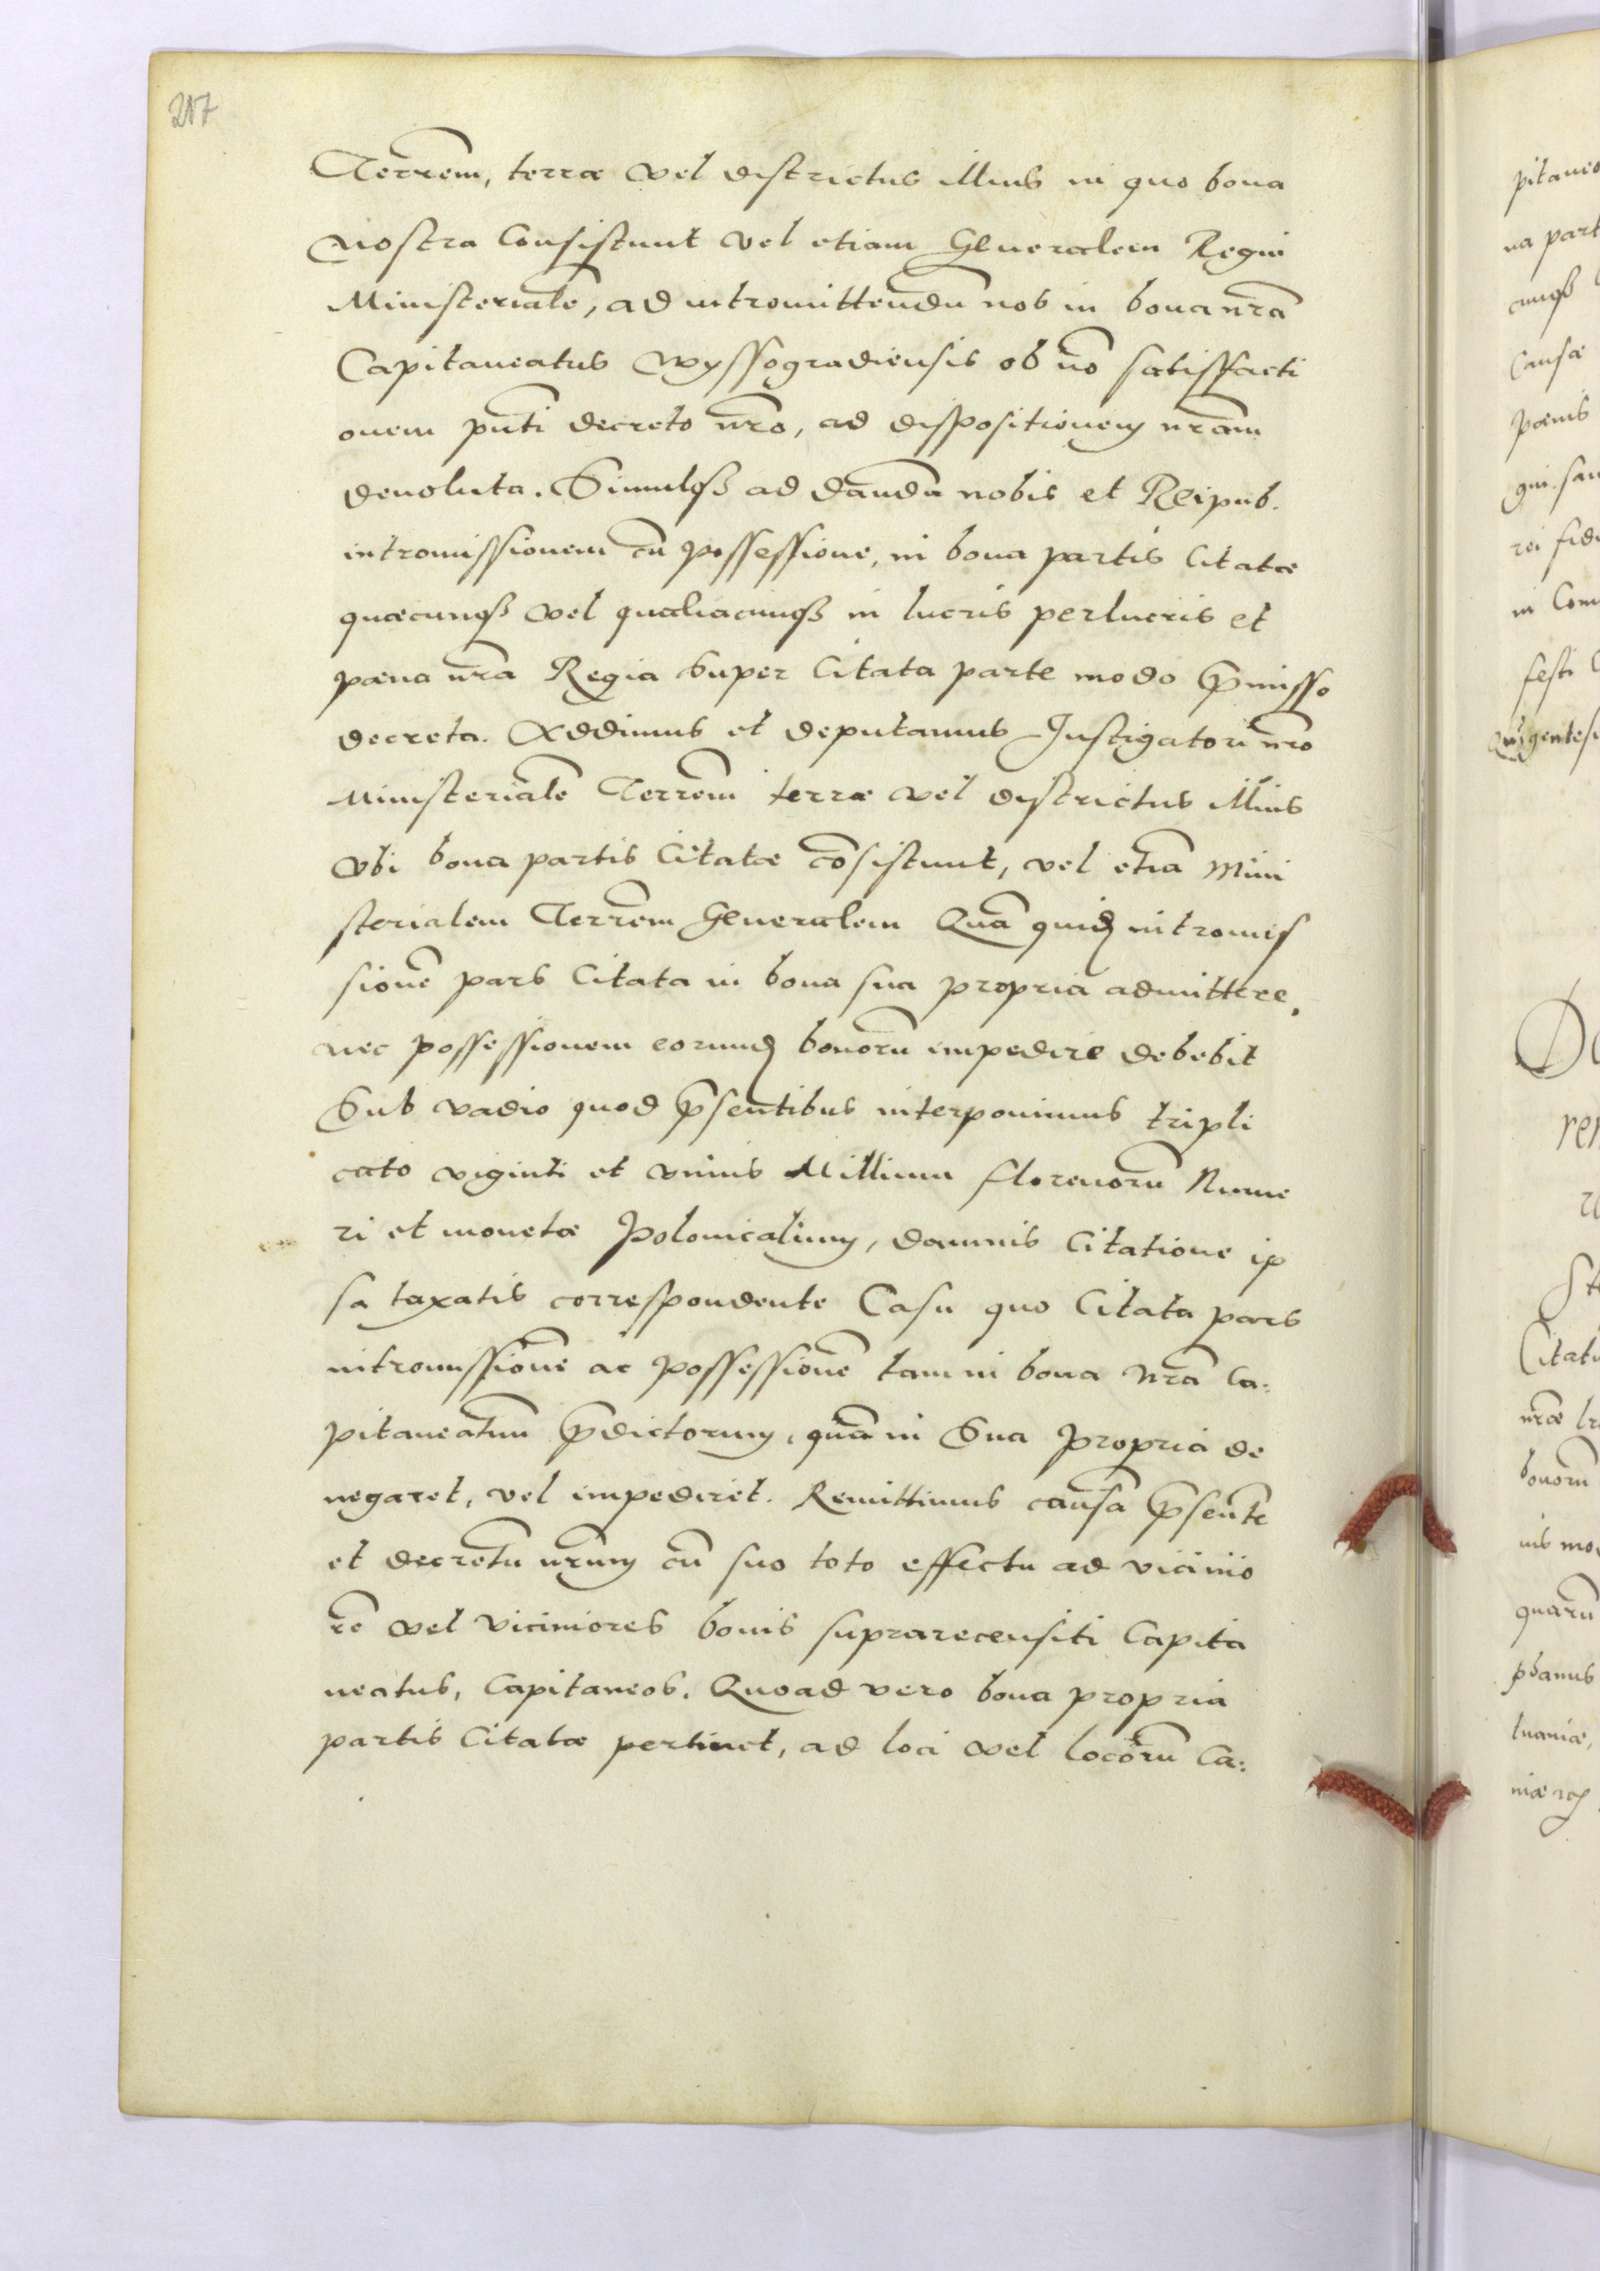 207
Terrem̃, terræ vel districtus illius in quo bona
nostra Consistunt vel etiam Generalem Regni
Ministerialẽ, ad intromittendũ nos in bona nr̃a
Capitaneatus Wyssogradiensis ob nõ satisfacti
onem pñti decreto nr̃o, ad dispositionem nr̃am
devoluta. Simulqȝ ad dandã nobis et Reipub.
intromissionem cũ possessione, in bona partis Citatæ
quæcunqȝ vel qualiacunqȝ in lucris perlucris et
pæna nr̃a Regia super Citata parte modo p̃misso
decreta. Addimus et deputamus Instigatori nr̃o
Ministerialẽ Terrem̃ terræ vel districtus illius
Vbi bona partis Citatæ cõsistunt, vel etiã Mini
sterialem Terrem̃ Generalem Quã quid intromis
sionẽ pars Citata in bona sua propria admittere,
nec possessionem eorund bonorũ impedire debebit
Sub vadio quod p̃sentibus interponimus tripli
cato viginti et vnius Millium florenorũ Nume
ri et monetæ Polonicalium, damnis Citatione ip
sa taxatis correspondente Casu quo Citata pars
intromissionẽ ac possessionẽ tam in bona nr̃a Ca:
pitaneatuum p̃dictorum, quã in Sua Propria de
negaret, vel impediret. Remittimus causã p̃sentẽ
et decretũ nr̃um cũ suo toto effectu ad vicinio
rẽ vel viciniores bonis suprarecensiti Capita
neatus, Capitaneos. Quoad vero bona propria
partis Citatæ pertinet, ad loci vel locorũ Ca:
pitaneo
na part
Causæ
pænis
rei
in Com
festi
De
ren
Citat
nr̃æ
bonorũ
quarũ